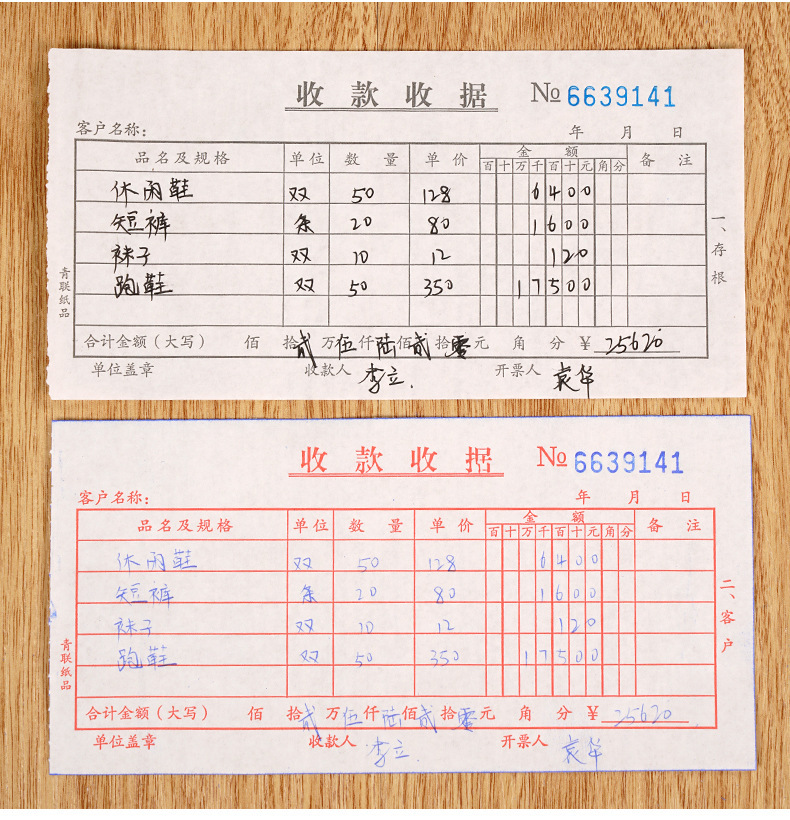 收款收据 № 6639141
客户名称： 年 月 日
品名及规格 单位 数量 单价 金额 百十万千百十元角分 备注
休闲鞋 双 50 128 6400
短裤 条 20 80 1600
袜子 双 10 12 120
跑鞋 双 50 350 17500
合计金额（大写） 佰 拾贰万伍仟陆佰贰拾零元 角 分 ￥25620
单位盖章 收款人 李立. 开票人 袁华
一、存根
青联纸品
收款收据 № 6639141
客户名称： 年 月 日
品名及规格 单位 数量 单价 金额 百十万千百十元角分 备注
休闲鞋 双 50 128 6400
短裤 条 20 80 1600
袜子 双 10 12 120
跑鞋 双 50 350 17500
合计金额（大写） 佰 拾贰万伍仟陆佰贰拾零元 角 分 ￥25620
单位盖章 收款人 李立. 开票人 袁华
二、客户
青联纸品